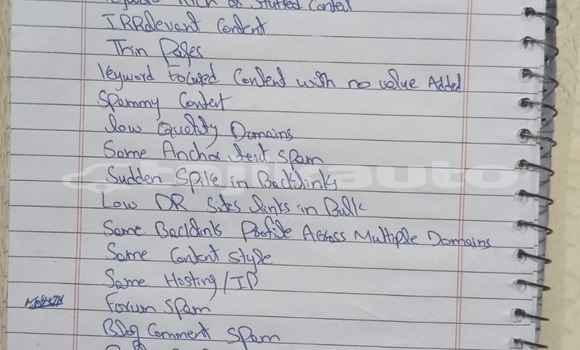 Stuffed Content
IRRelevant Content
Thin Pages
Keyword Focused Content with no value Added
Spammy Content
Low Quality Domains
Same Anchor text Spam
Sudden Spike in Backlinks
Low DR Sides links in Bulk
Same Backlinks Profile Across Multiple Domains
Same Content Style
Same Hosting/IP
Forum Spam
Blog Comment Spam